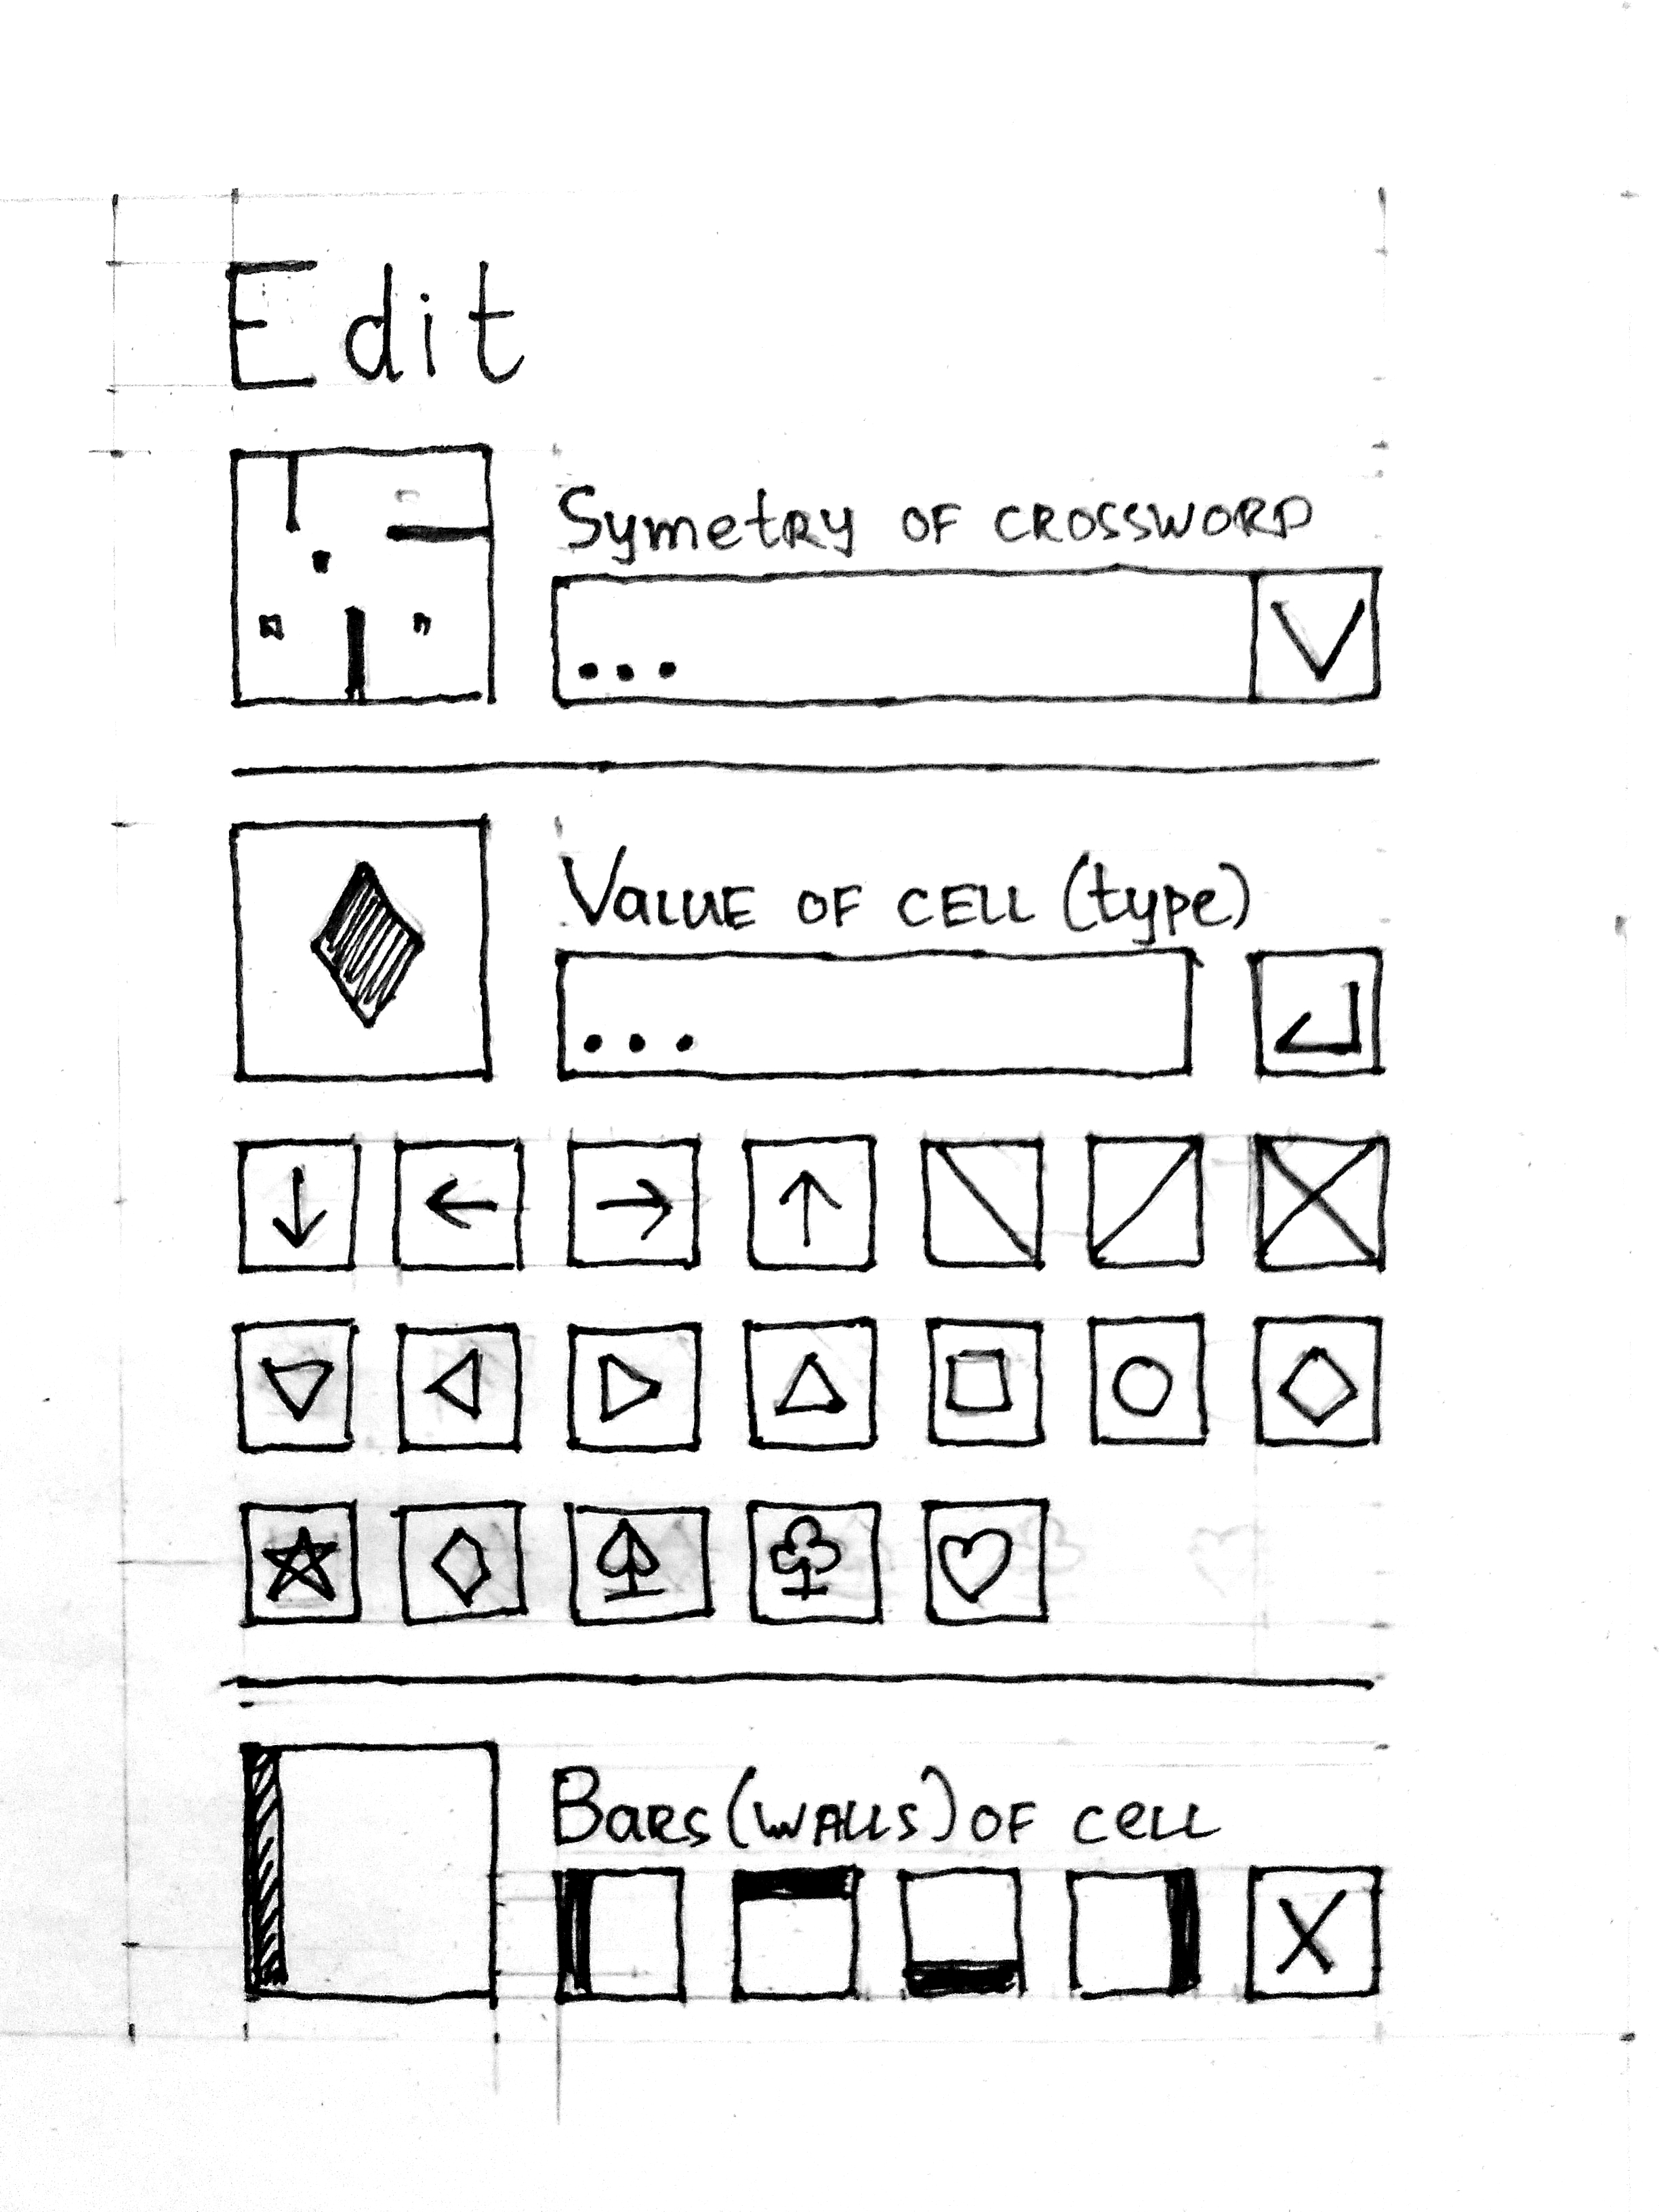 Edit
Symetry OF CROSSWORD
...
Value OF CELL (type)
...
X
Bars (WALLS) OF cell
X